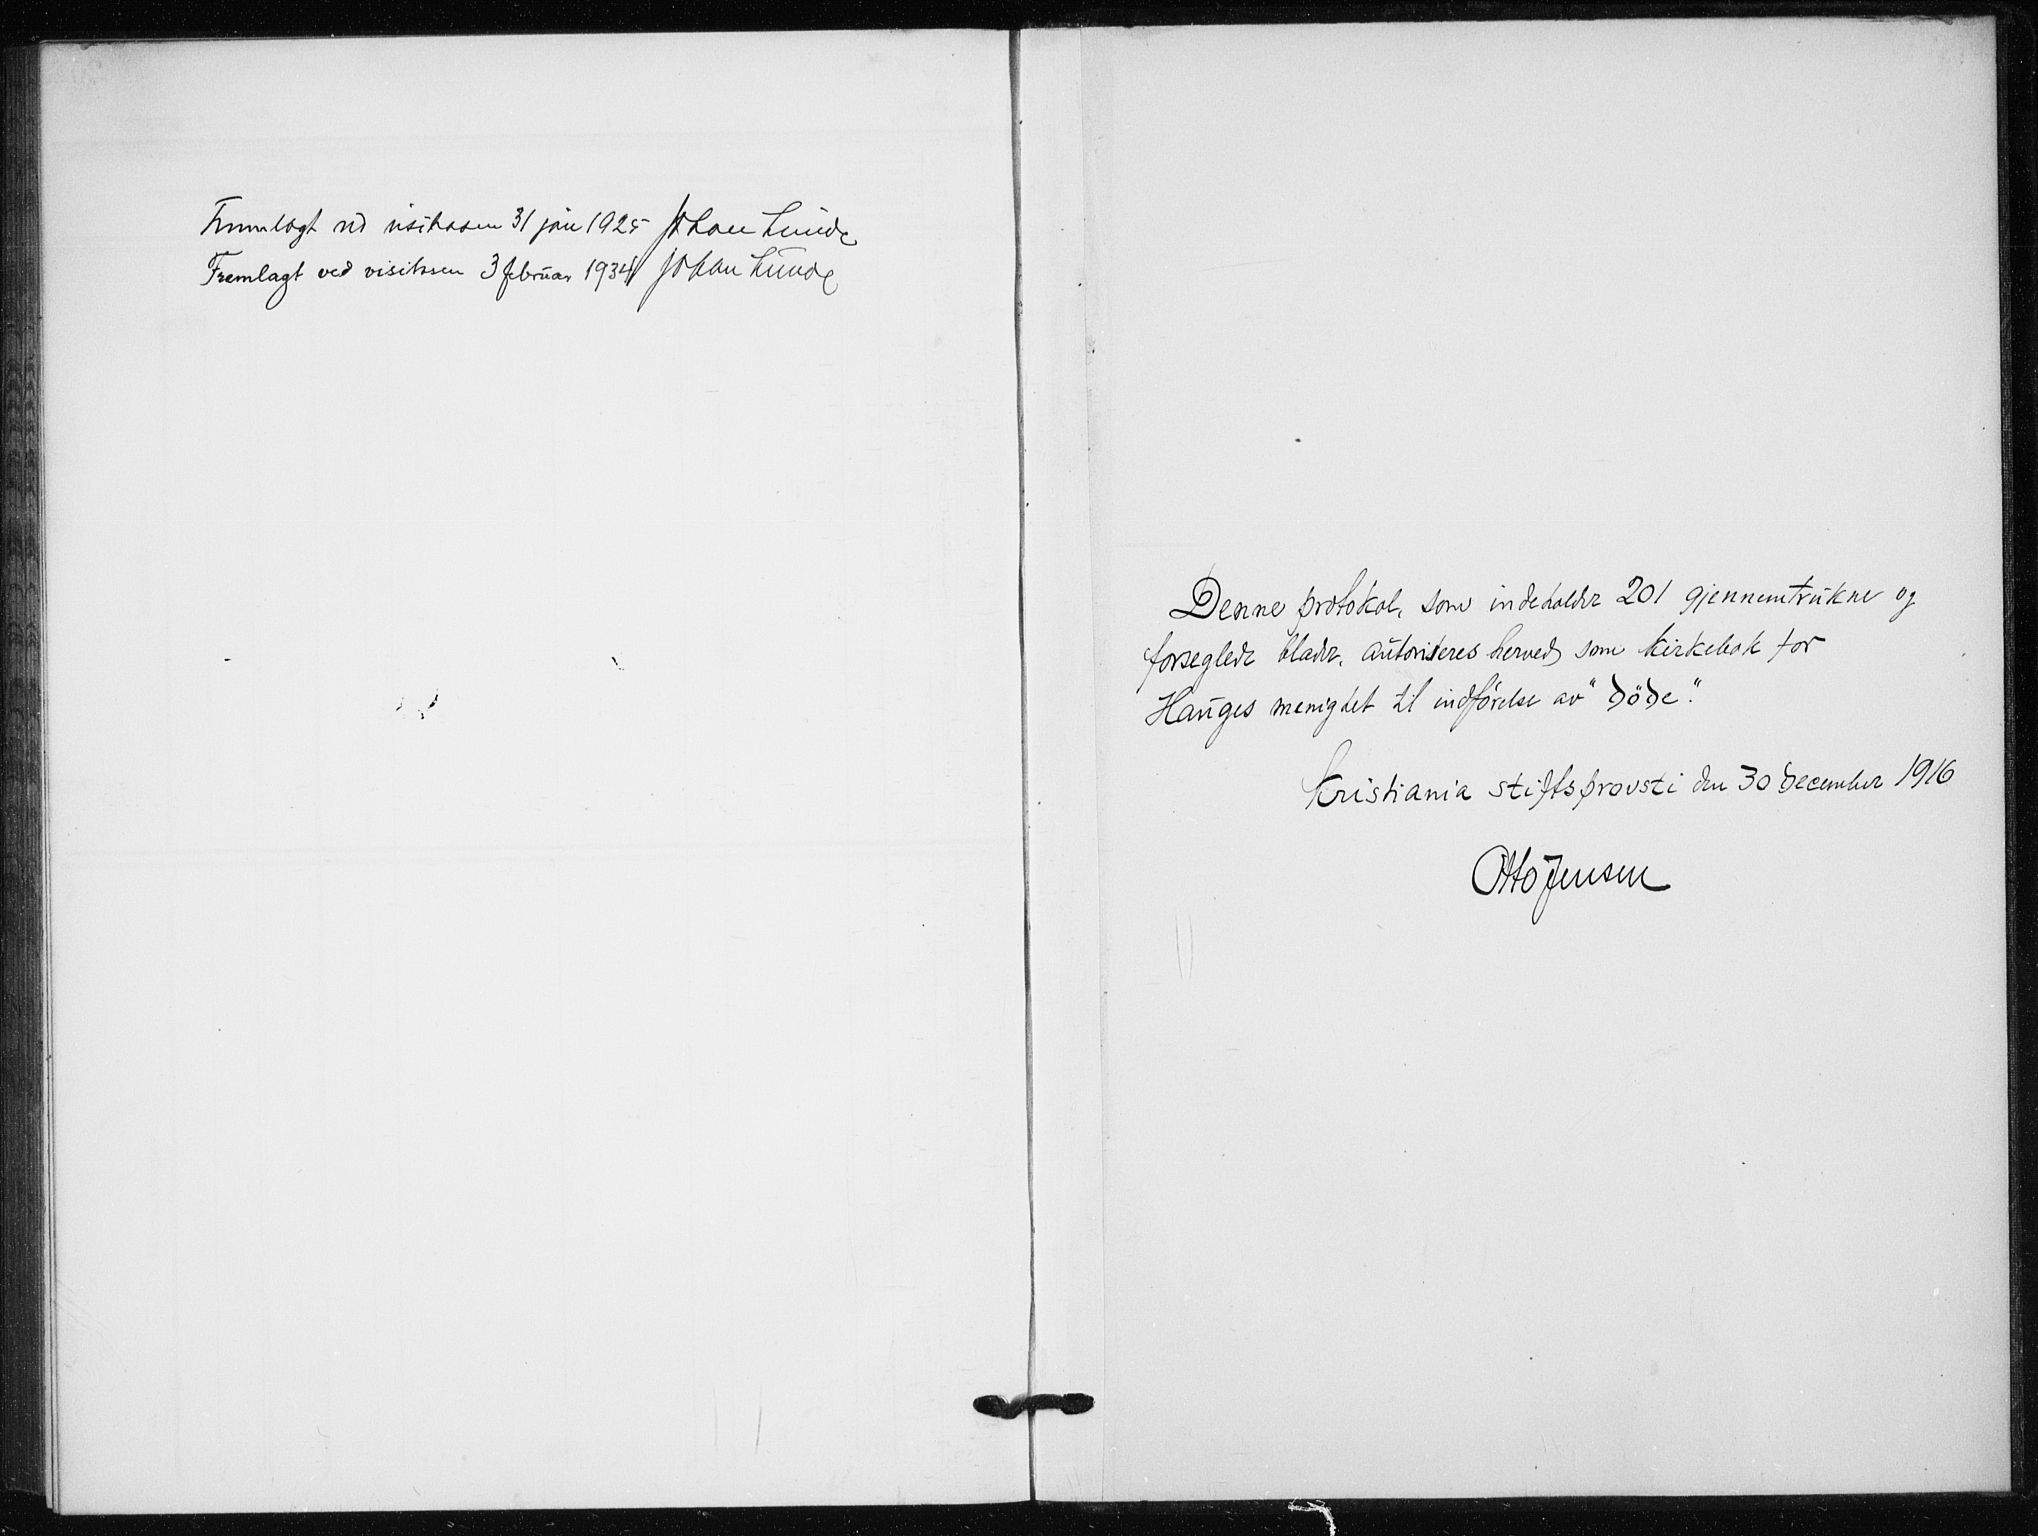 Fremlagt ved visitasen 31 jan 1925 Johan Lunde
Fremlagt ved visitasen 3 februar 1934 Johan Lunde
Denne protokol, som indeholder 201 gjennemtrukne og
forseglede blader, autoriseres herved som kirkebok for
Hauges menighet til indförelse av "döde".
Kristiania stiftsprovsti den 30 december 1916
Otto Jensen